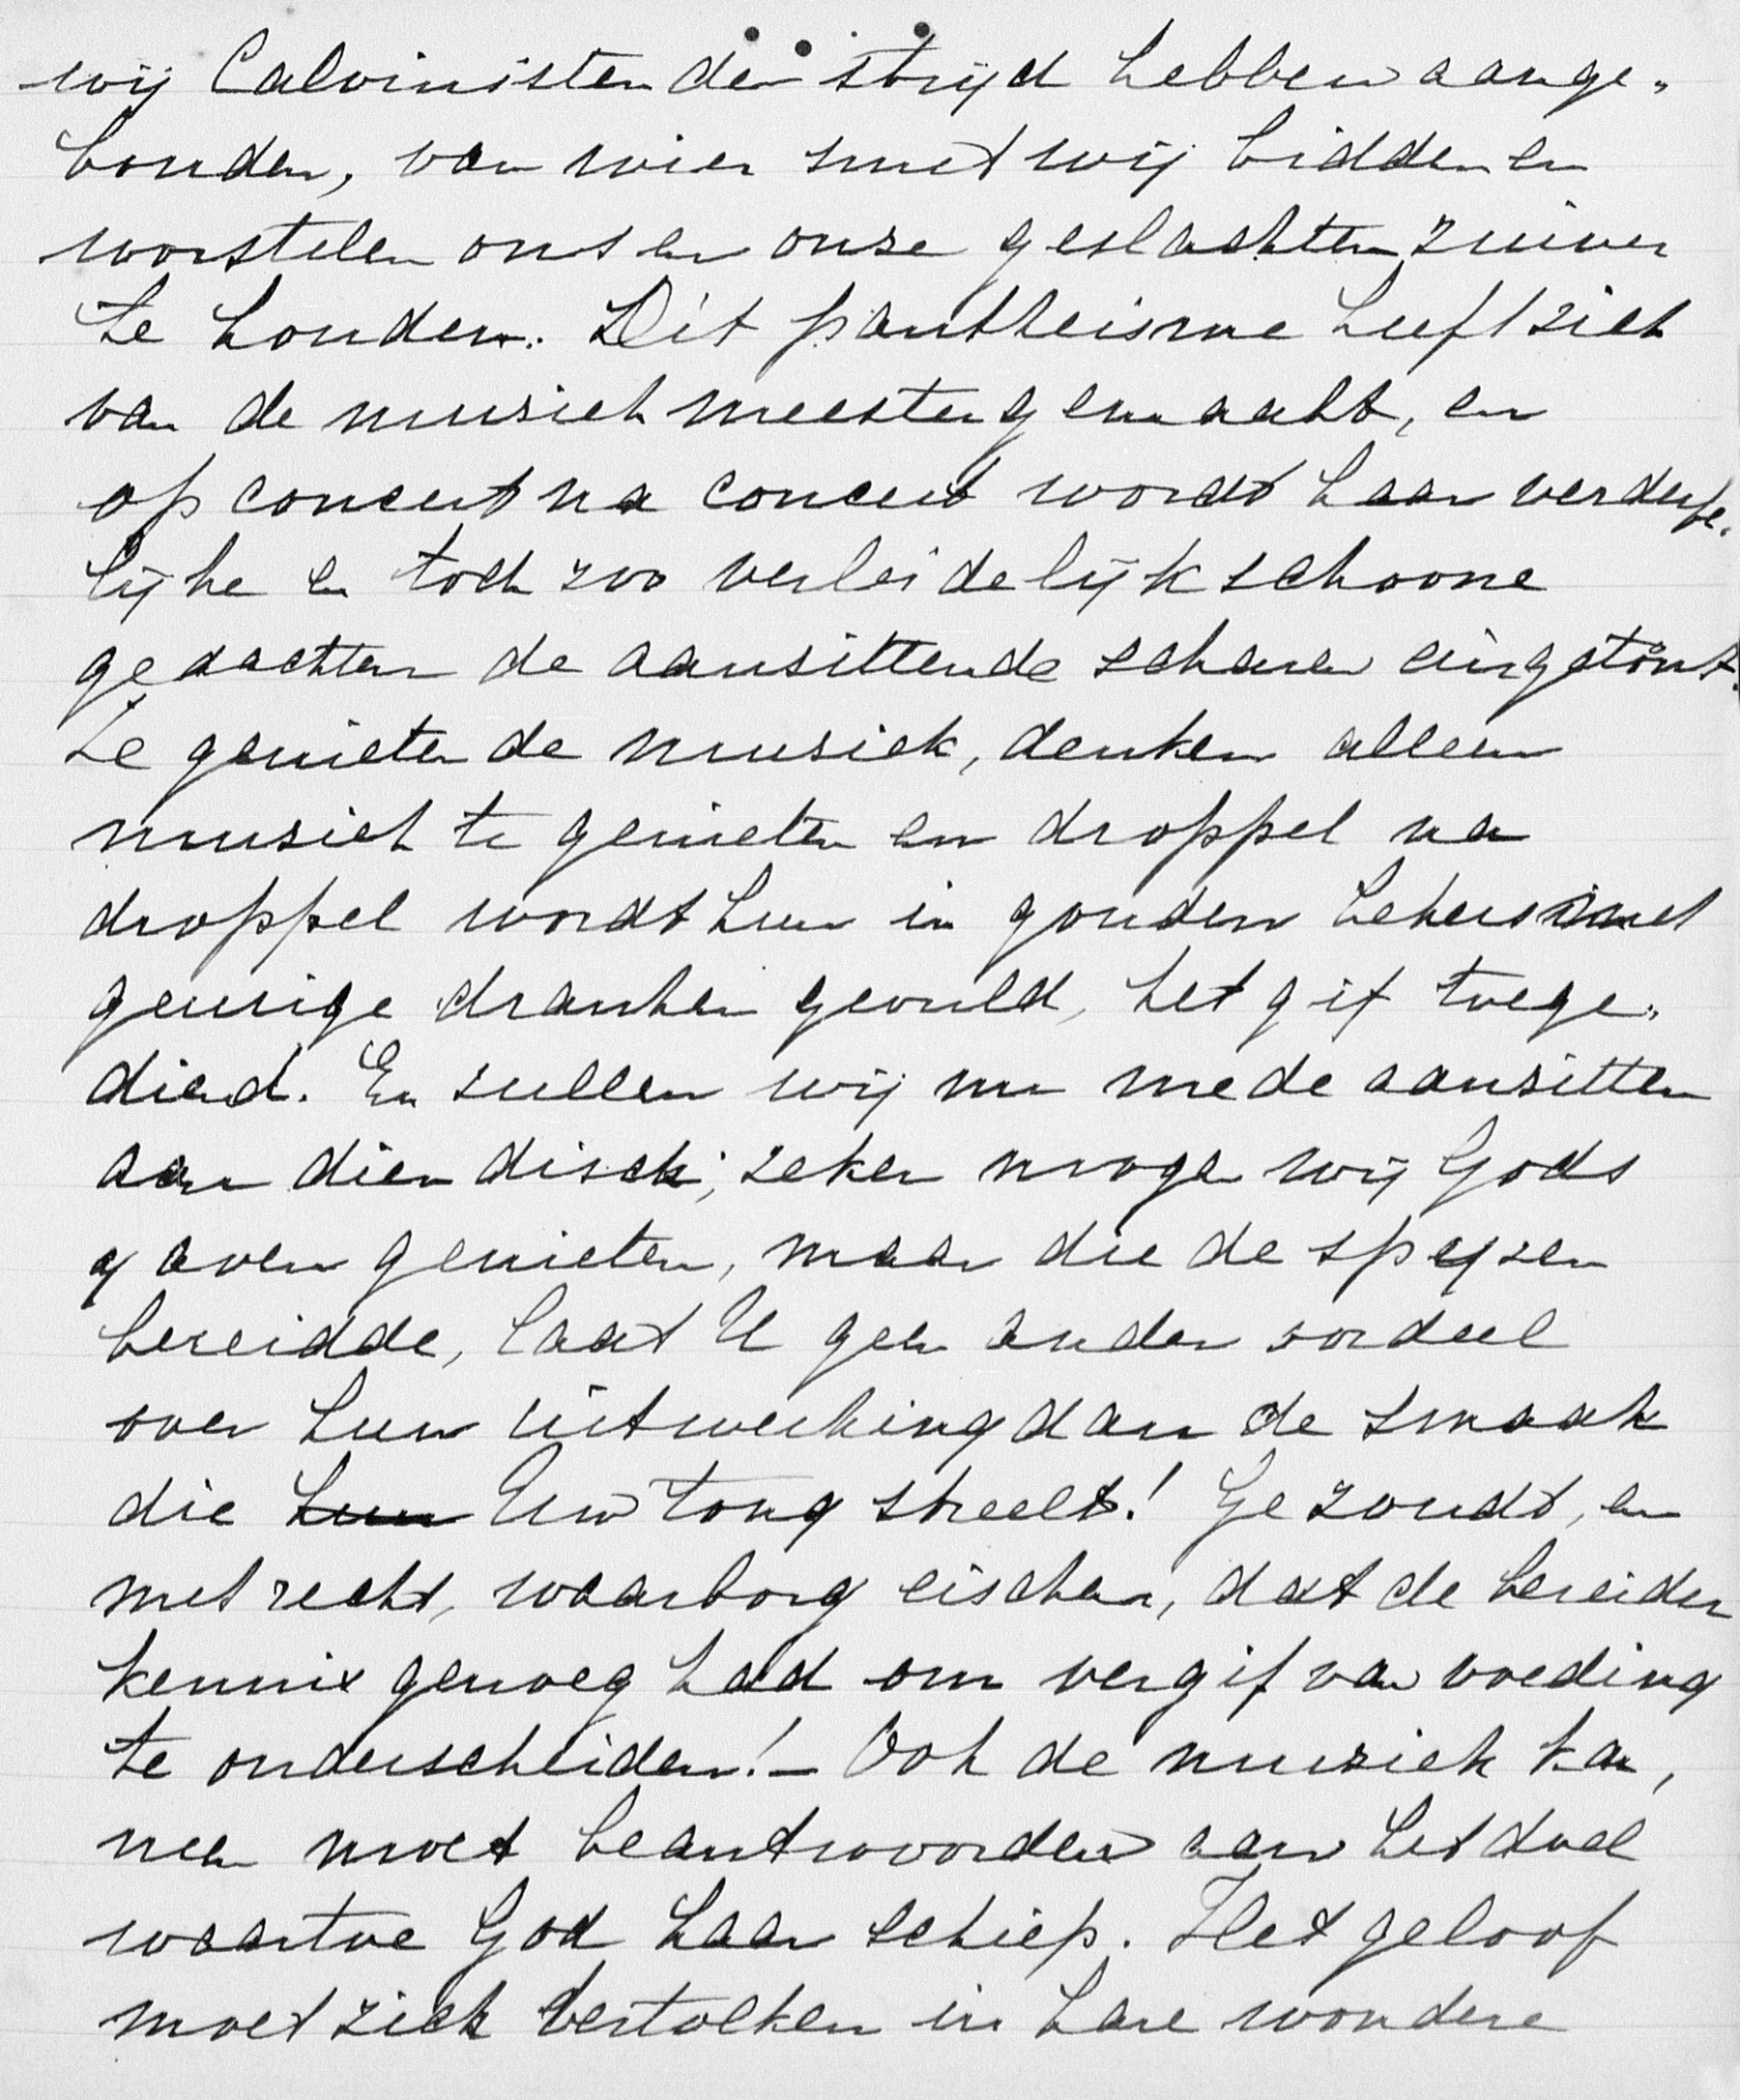 wij Calvinisten den strijd hebben aange„
bonden, van wier smet wij bidden en
worstelen ons en onze geslachten zuiver
te houden. Dit pantheisme heeft zich
van de musiek meester gemaakt, en
op concert na concert wordt haar verderfe„
lijke en toch zoo verleidelijk schoone
gedachten de aanzittende scharen eingetönt.
Ze genieten de musiek, denken alleen
musiek te genieten en droppel na
droppel wordt hun in gouden bekers met
geurige dranken gevuld, het gif toege„
diend. En zullen wij nu mede aanzitten
aan dien disch; zeker mogen wij Gods
gaven genieten, maar die de spijzen
bereidde, laat U geen ander oordeel
over hun uitwerking dan de smaak
die hun Uw tong streelt! Ge zoudt, en
met recht, waarborg eischen, dat de bereider
kennis genoeg had om vergif van voeding
te onderscheiden! – Ook de musiek kan,
neen moet beantwoorden aan het doel
waartoe God haar schiep. Het geloof
moet zich vertolken in hare wondere